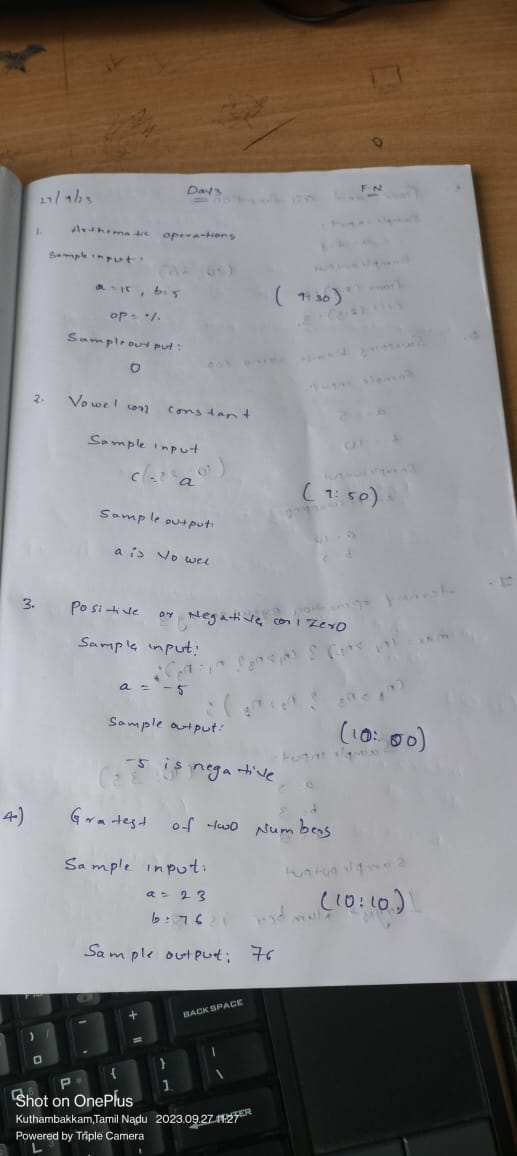 27/9/23 Day3 F.N
1. Arthematic operations
Sample input:
a=15, b=5 (9:30)
op= %
Sample output:
0
2. Vowel (or) constant
Sample input
c = a
(9:50)
Sample output:
a is Vowel
3. Positive or Negative (or) Zero
Sample input:
a = -5
Sample output: (10:00)
-5 is negative
4) Gratest of two Numbers
Sample input:
a = 23 (10:10)
b = 76
Sample output: 76
BACKSPACE
+
=
-
)
0
P
{
[
}
]
|
\
ENTER
L
Shot on OnePlus
Kuthambakkam,Tamil Nadu 2023.09.27 11:27
Powered by Triple Camera